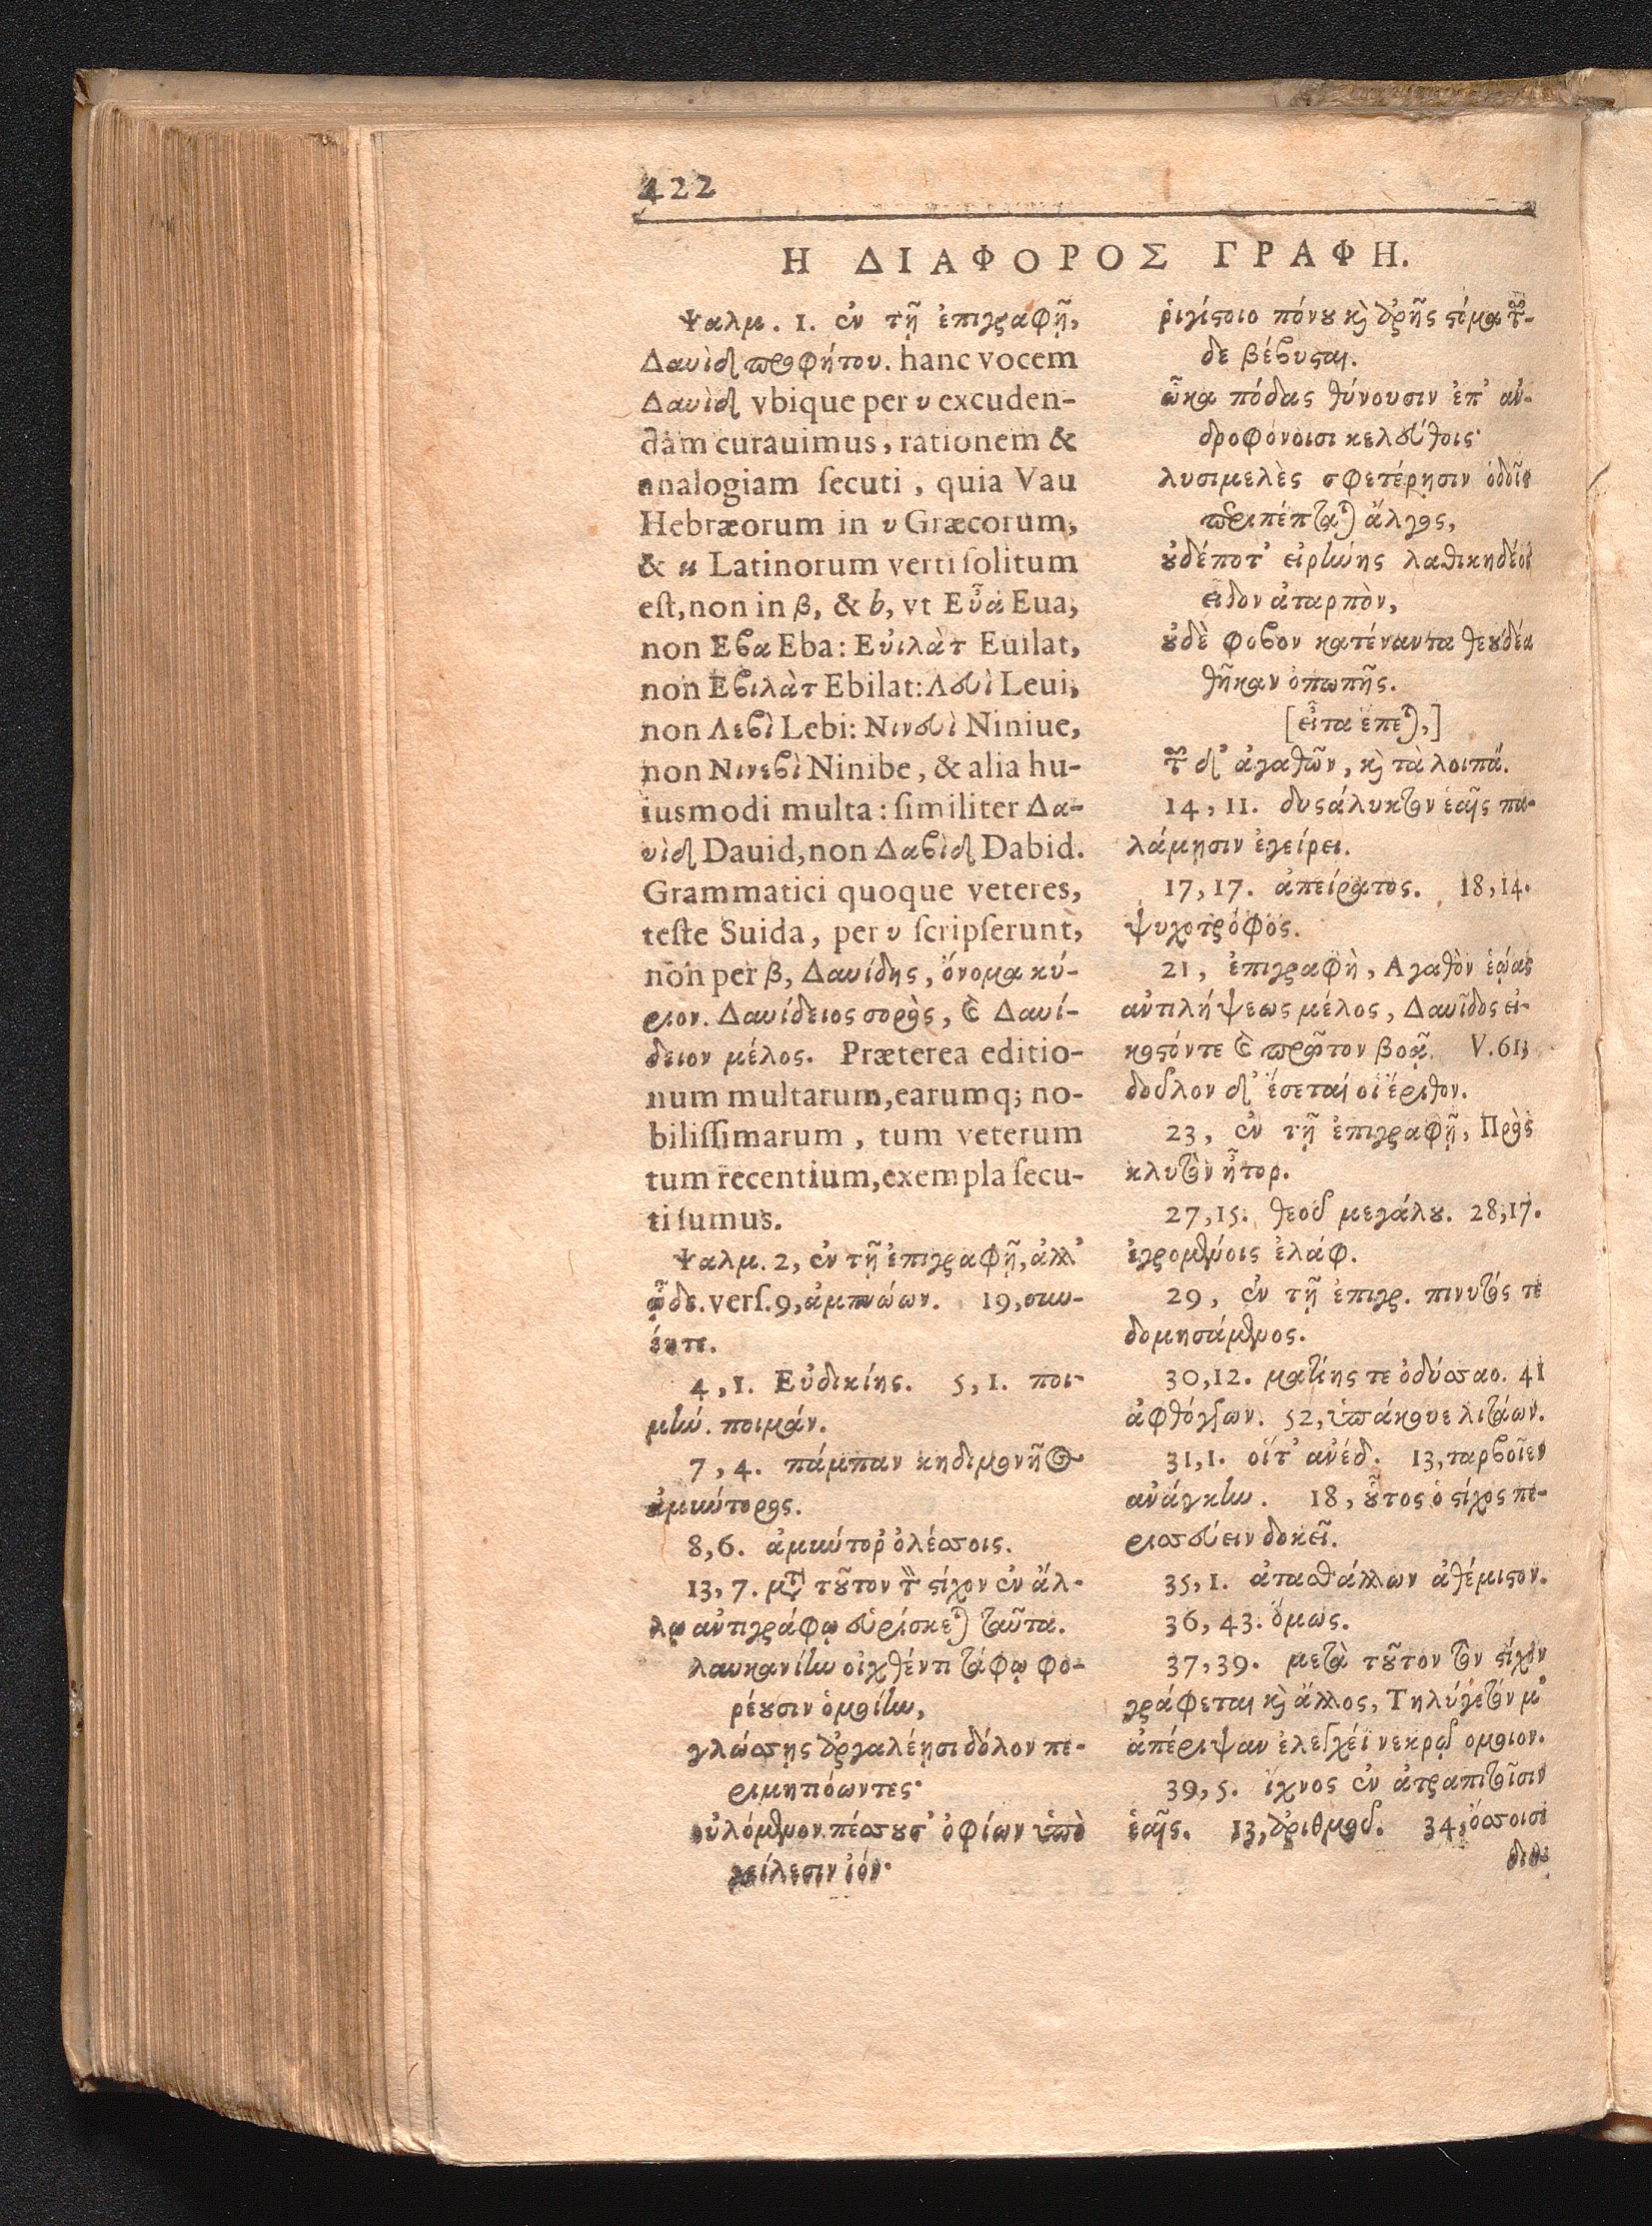 422
Η ΔΙΑΦΟΡΟΣ ΓΡΑΦΗ.
Ψαλμ. 1. ἐν τῇ ἐπιγραφῇ,
Δαυὶδ προφήτου. hanc vocem
Δαυὶδ vbique per υ excuden-
dam curauimus, rationem &
analogiam ſecuti, quia Vau
Hebræorum in υ Græcorum,
& u Latinorum verti ſolitum
eſt, non in β, & b, vt Εὖα Eua,
non Εβα Eba: Εὐιλὰτ Euilat,
non Εβιλὰτ Ebilat: Λευὶ Leui,
non Λεβὶ Lebi: Νινευὶ Niniue,
non Νινεβὶ Ninibe, & alia hu-
iusmodi multa: ſimiliter Δα-
υὶδ Dauid, non Δαβὶδ Dabid.
Grammatici quoque veteres,
teſte Suida, per υ ſcripſerunt,
non per β, Δαυίδης, ὄνομα κύ-
ριον. Δαυίδειος σορὸς, & Δαυί-
δειον μέλος. Præterea editio-
num multarum, earumq; no-
biliſſimarum, tum veterum
tum recentium, exempla ſecu-
ti ſumus.
Ψαλμ. 2, ἐν τῇ ἐπιγραφῇ, ἀλλ'
ᾧδε. verſ. 9, ἀμπνώων. 19, σαω-
4, 1. Εὐδικίης. 5, 1. ποι-
μὴν. ποιμάν.
7, 4. πάμπαν κηδεμονῆος
ἀμύντορος.
8, 6. ἀμύντορ' ὀλέσσοις.
13, 7. μετὰ τοῦτον τὸν στίχον ἐν ἄλ-
λῳ ἀντιγράφῳ εὑρίσκεται ταῦτα.
λαυκανίην οἰχθέντι τάφῳ φο-
ρέουσιν ὁμοίην,
γλώσσῃς ἀργαλέῃσι δόλον πε-
ριμητιόωντες·
οὐλόμενον πέσσουσ' ὀφίων ὑπὸ
χείλεσιν ἰόν·
ῥιγίστοιο πόνου καὶ ἀρῆς στόμα τῶν-
δε βέβυσται.
ὦκα πόδας θύνουσιν ἐπ' ἀν-
δροφόνοισι κελεύθοις·
λυσιμελὲς σφετέρῃσιν ὁδοῖς
περιπέπταται ἄλγος,
οὐδέποτ' εἰρήνης λαθικηδέος
εἶδον ἀταρπὸν,
οὐδὲ φοβον κατέναντα θεουδέα
θῆκαν ὀπωπῆς.
[εἶτα ἕπεται,]
τῶν δ' ἀγαθῶν, καὶ τὰ λοιπά.
14, 11. δυσάλυκτον ἑαῖς πα-
λάμῃσιν ἐγείρει.
17, 17. ἀπείρατος. 18, 14.
ψυχοτρόφος.
21, ἐπιγραφὴ, Αγαθὸν ἑῴας
ἀντιλήψεως μέλος, Δαυῖδος εἰ-
κοστόν τε & πρῶτον βοᾷ. V. 61,
δοῦλον δ' ἔσεταί οἱ ἔριθον.
23, ἐν τῇ ἐπιγραφῇ, Πρὸς
κλυτὸν ἦτορ.
27, 15. θεοῦ μεγάλου. 28, 17.
ἐγρομένοις ἐλάφ.
29, ἐν τῇ ἐπιγρ. πινυτός τε
δομησάμενος.
30, 12. ματίης τε ὀδύσσαο. 41
ἀφθόγγων. 52, ὑπάκουε λιτάων.
31, 1. οἵ τ' ἀνέδ. 13, ταρβοῖεν
ἀνάγκην. 18, οὗτος ὁ στίχος πε-
ρισσεύειν δοκεῖ.
35, 1. ἀτασθάλλων ἀθέμιστον.
36, 43. ὅμως.
37, 39. μετὰ τοῦτον τὸν στίχον
γράφεται καὶ ἄλλος, Τηλύγετόν μ'
ἀπέριψαν ἐλεγχέϊ νεκρῷ ομοιον.
39, 5. ἴχνος ἐν ἀτραπιτοῖσιν
ἑαῖς. 13, ἀριθμοῦ. 34, ὅσσοισι